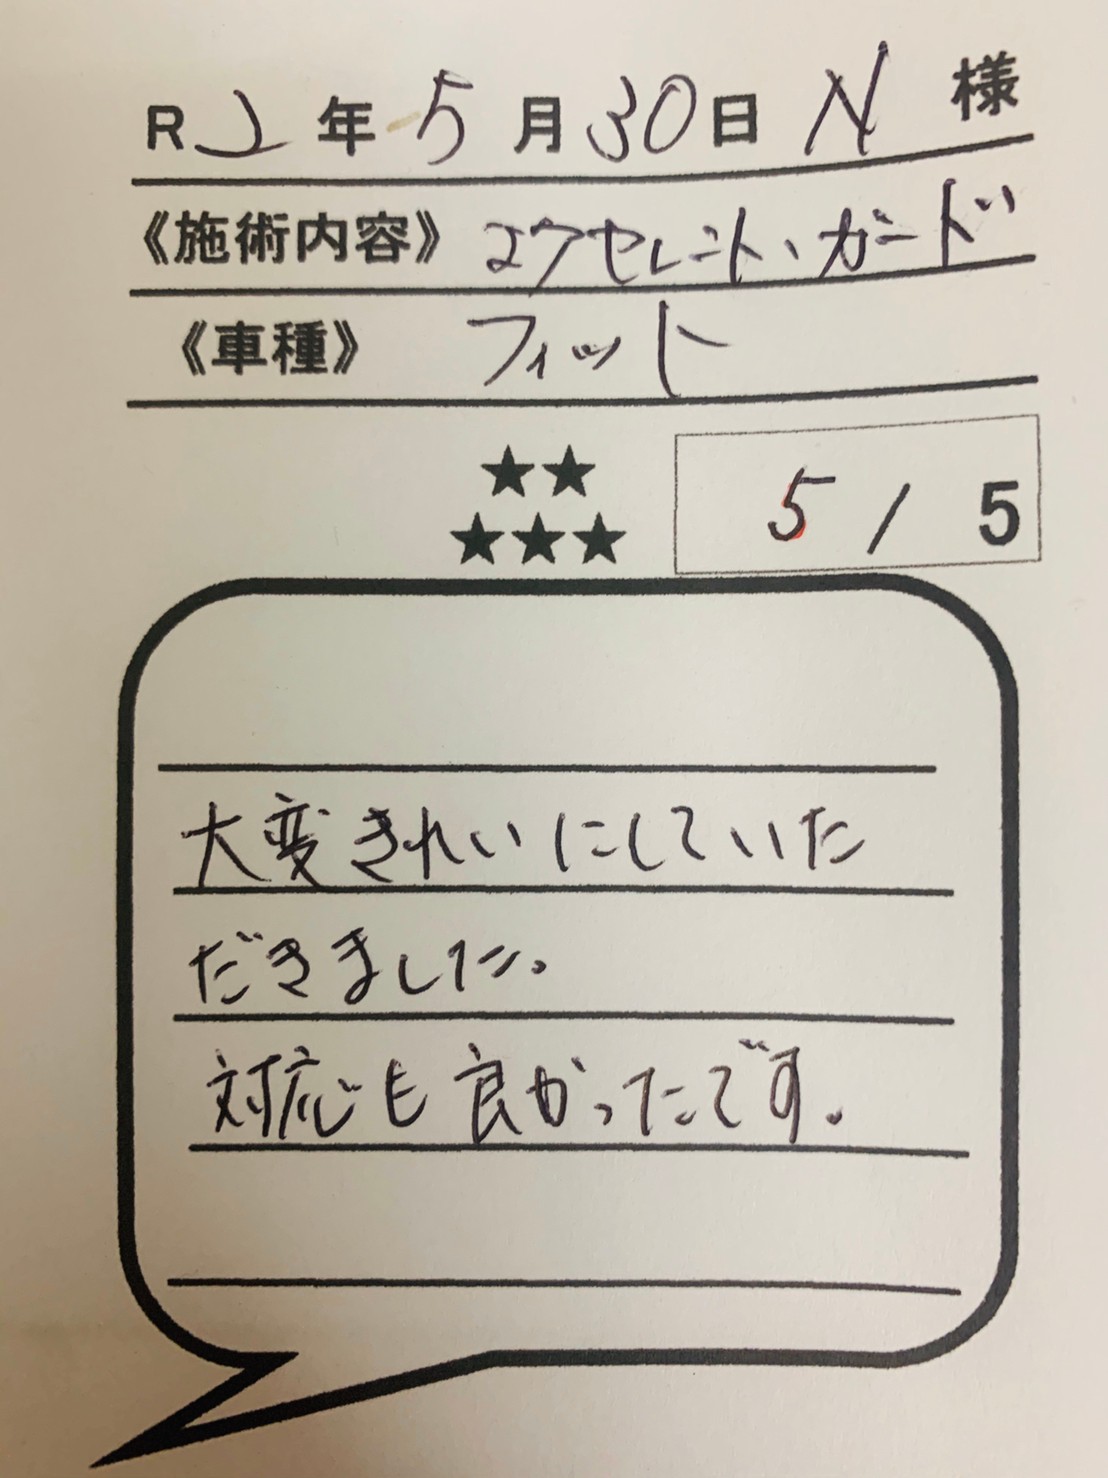 R2年5月30日 N 様
《施術内容》 エクセレント、ガード
《車種》 フィット
★★
★★★
5 / 5
大変きれいにしていた
だきました。
対応も良かったです。